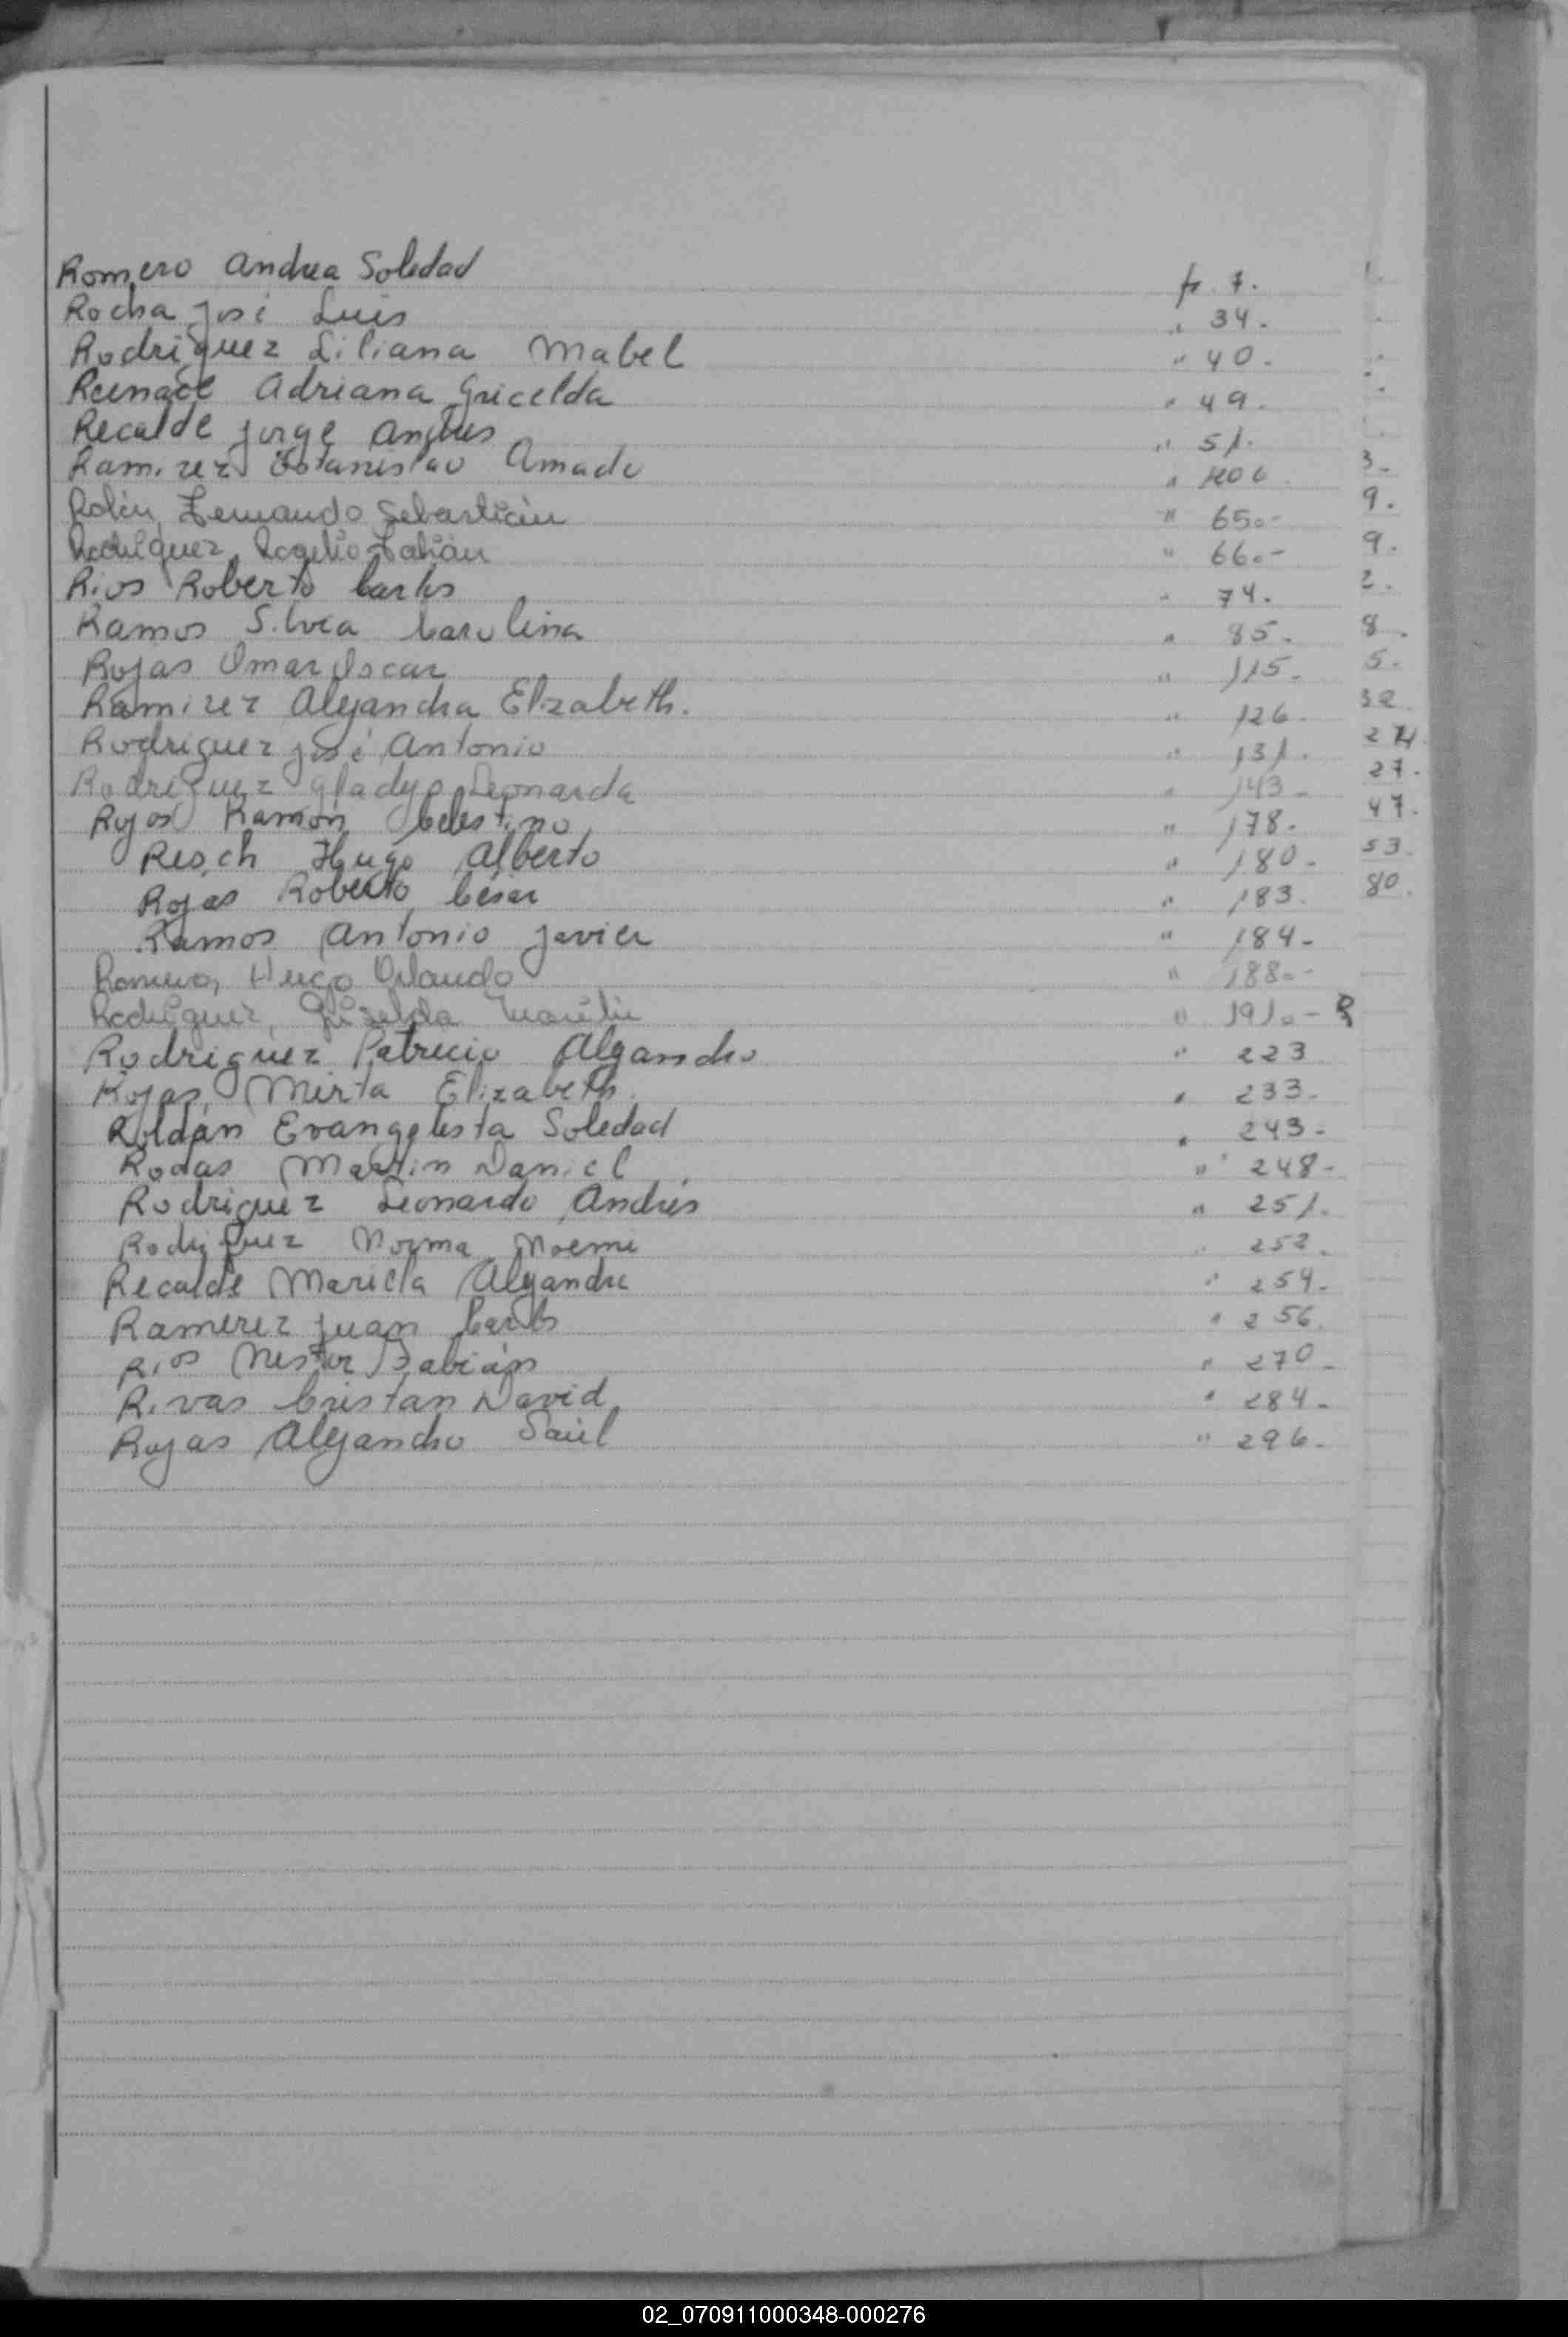 Romero Andrea Soledad fs 7.
Rocha José Luis " 34.
Rodriguez Liliana Mabel " 40.
Adriana Gricelda " 49.
Recalde Jorge " 51.
Ramirez Estanislao Amado " 3.
Rolin, Fernando Sebastián " 65.- 9.
Rodriguez, Rogelio Fabián " 66.- 9.
Rios Roberto Carlos " 74. 2.
Ramos Silvia Carolina " 85. 8.
Rojas Omar Oscar " 115. 5.
Ramirez Alejandra Elizabeth. " 126. 32.
Rodriguez José Antonio " 131.
Rodriguez Gladys Leonarda " 143 - 27.
Rojas Ramón Celestino " 178. 47.
Resch Hugo Alberto " 180. 53.
Rojas Roberto César " 183. 80.
Ramos Antonio Javier " 184-
Romero, Hugo Orlando " 188.-
Rodriguez, Griselda " 191.-
Rodriguez Patricio Alejandro " 223
Rojas, Mirta Elizabeth. " 233-
Roldán Evangelista Soledad " 243-
Rodas Martin Daniel " 248-
Rodriguez Leonardo Andrés " 251.
Rodriguez Norma Noemi " 252.
Recalde Maricla Alejandra " 254.
Ramirez Juan Carlos " 256.
Rios Nestor Fabián " 270-
Rivas Cristan David " 284-
Rojas Alejandro Saúl " 296.
02_070911000348-000276